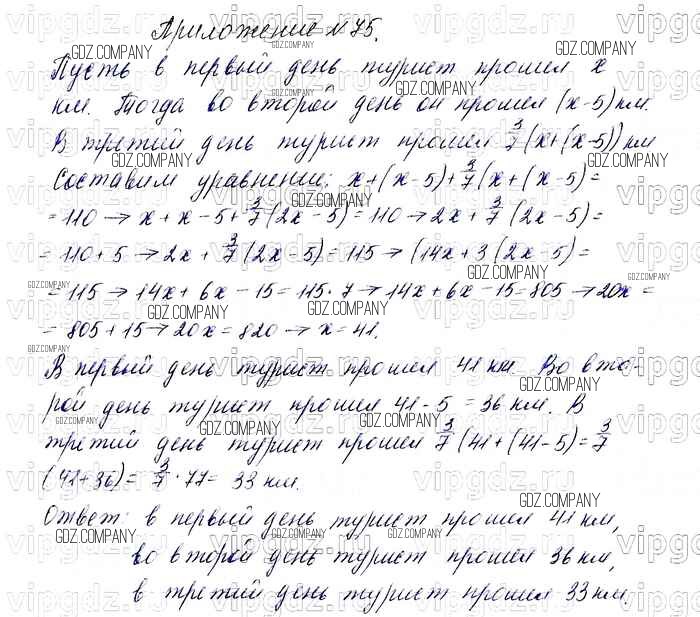 Приложение №75.
Пусть в первый день турист прошел x
км. Тогда во второй день он прошел (x-5) км.
В третий день турист прошел 3/7 (x+(x-5)) км
Составим уравнении: x+(x-5)+3/7(x+(x-5)=
=110 → x+x-5+3/7(2x-5)=110 → 2x+3/7(2x-5)=
=110+5 → 2x+3/7(2x-5)=115 → (14x+3(2x-5)=
=115 → 14x+6x-15=115·7 → 14x+6x-15=805 → 20x=
=805+15 → 20x=820 → x=41.
В первый день турист прошел 41 км. Во вто-
рой день турист прошел 41-5=36 км. В
третий день турист прошел 3/7(41+(41-5)=3/7
(41+36)=3/7·77=33 км.
Ответ: в первый день турист прошел 41 км,
во второй день турист прошел 36 км,
в третий день турист прошел 33 км.